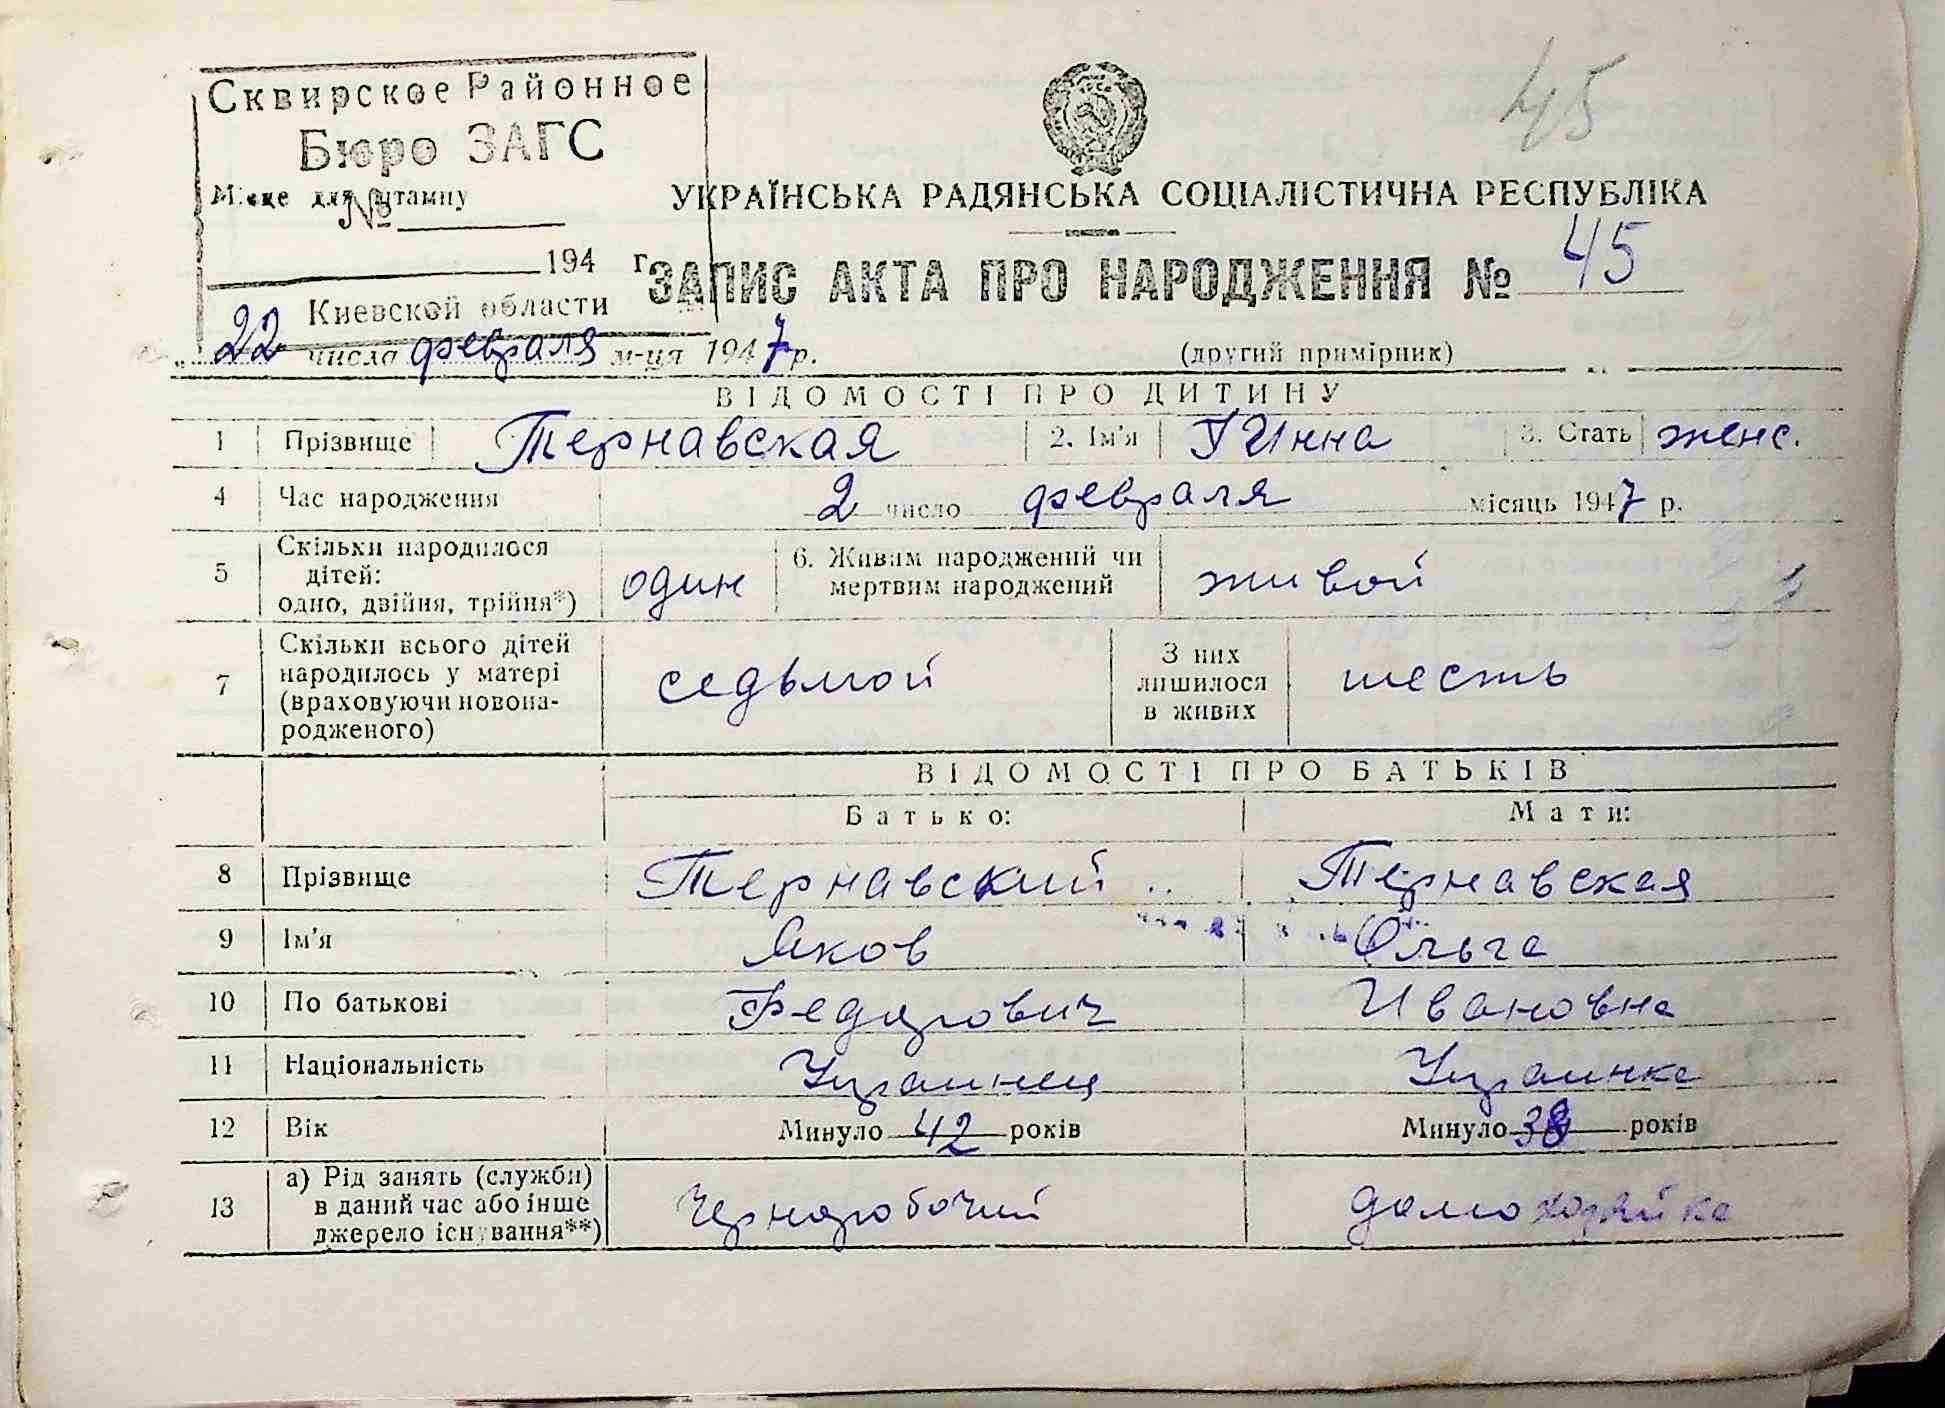 45
Сквирское Районное
Бюро ЗАГС
Місце для штампу
№
194 г.
Киевской области
УКРАЇНСЬКА РАДЯНСЬКА СОЦІАЛІСТИЧНА РЕСПУБЛІКА
ЗАПИС АКТА ПРО НАРОДЖЕННЯ № 45
„22 числа февраля м-ця 1947 р. (другий примірник)
ВІДОМОСТІ ПРО ДИТИНУ
1 Прізвище Тернавская 2. Ім'я Инна 3. Стать женс.
4 Час народження 2 число февраля місяць 1947 р.
5 Скільки народилося дітей: одно, двійня, трійня*) один 6. Живим народжений чи мертвим народжений живой
7 Скільки всього дітей народилось у матері (враховуючи новонародженого) седьмой З них лишилося в живих шесть
ВІДОМОСТІ ПРО БАТЬКІВ
Батько: Мати:
8 Прізвище Тернавский Тернавская
9 Ім'я Яков Ольга
10 По батькові Федорович Ивановна
11 Національність Украинец Украинка
12 Вік Минуло 42 років Минуло 38 років
13 а) Рід занять (служби) в даний час або інше джерело існування**) Чернорабочий домохозяйка